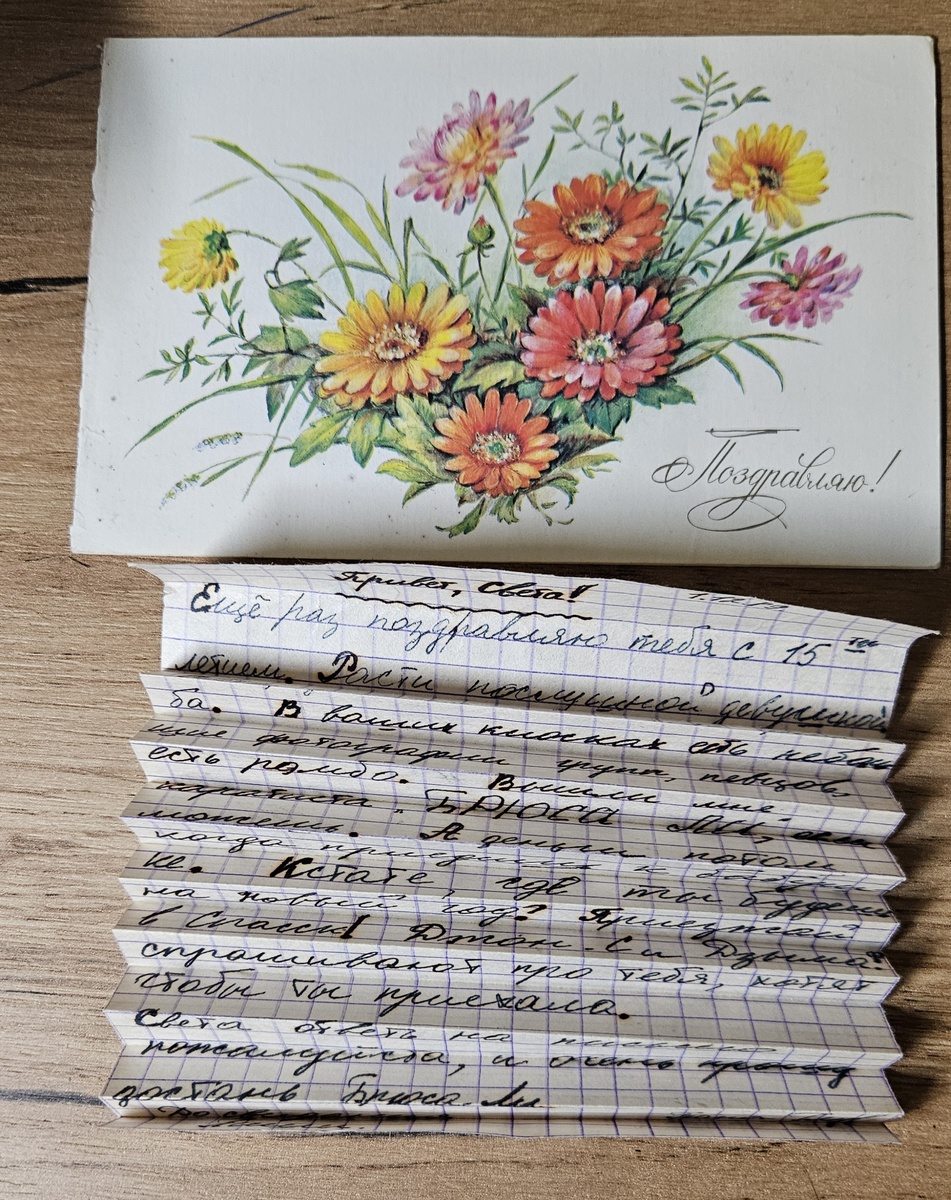 Поздравляю!
Привет, Света!
Ещё раз поздравляю тебя с 15
летием. Расти послушной девушкой
ба. В ваших киосках есть
фотографии групп, певцов,
есть рэмбо. Вышли мне
каратиста БРЮСА ЛИ, если
можешь. А деньги потом
когда
ке. Кстате, где ты будешь
на новый год? Приезжай
в Спасск! Джон-Си и Дзыма
спрашивают про тебя, хотят
чтобы ты приехала.
Света ответь на
пожалуйста, и очень прошу
достань Брюса Ли